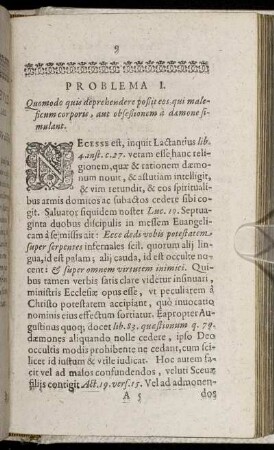 9
PROBLEMA I.
Quomodo quis deprehendere possit eos, qui male-
ficum corporis, aut obsessionem à dæmone si-
mulant.
NECESSE est, inquit Lactantius lib.
4. inst. c. 27. veram esse hanc reli-
gionem, quæ & rationem dæmo-
num novit, & astutiam intelligit,
& vim retundit, & eos spirituali-
bus armis domitos ac subactos cedere sibi co-
git. Salvator siquidem noster Luc. 10. Septua-
ginta duobus discipulis in messem Euangeli-
cam à se missis ait: Ecce dedi vobis potestatem
super serpentes infernales scil. quorum alij lin-
gua, id est palam; alij cauda, id est occulte no-
cent: & super omnem virtutem inimici. Qui-
bus tamen verbis satis clare videtur insinuari,
ministris Ecclesiæ opus esse, vt peculiarem à
Christo potestatem accipiant, quò invocatio
nominis eius effectum sortiatur. Eapropter Au-
gustinus quoq; docet lib. 83. quæstionum q. 79.
dæmones aliquando nolle cedere, ipso Deo
occultis modis prohibente ne cedant, cum sci-
licet id iustum & vtile iudicat. Hoc autem fa-
cit vel ad malos confundendos, veluti Sceuæ
filijs contigit Act. 19. vers. 15. Vel ad admonen-
A 5 dos